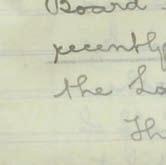 Board
recently
the
Th